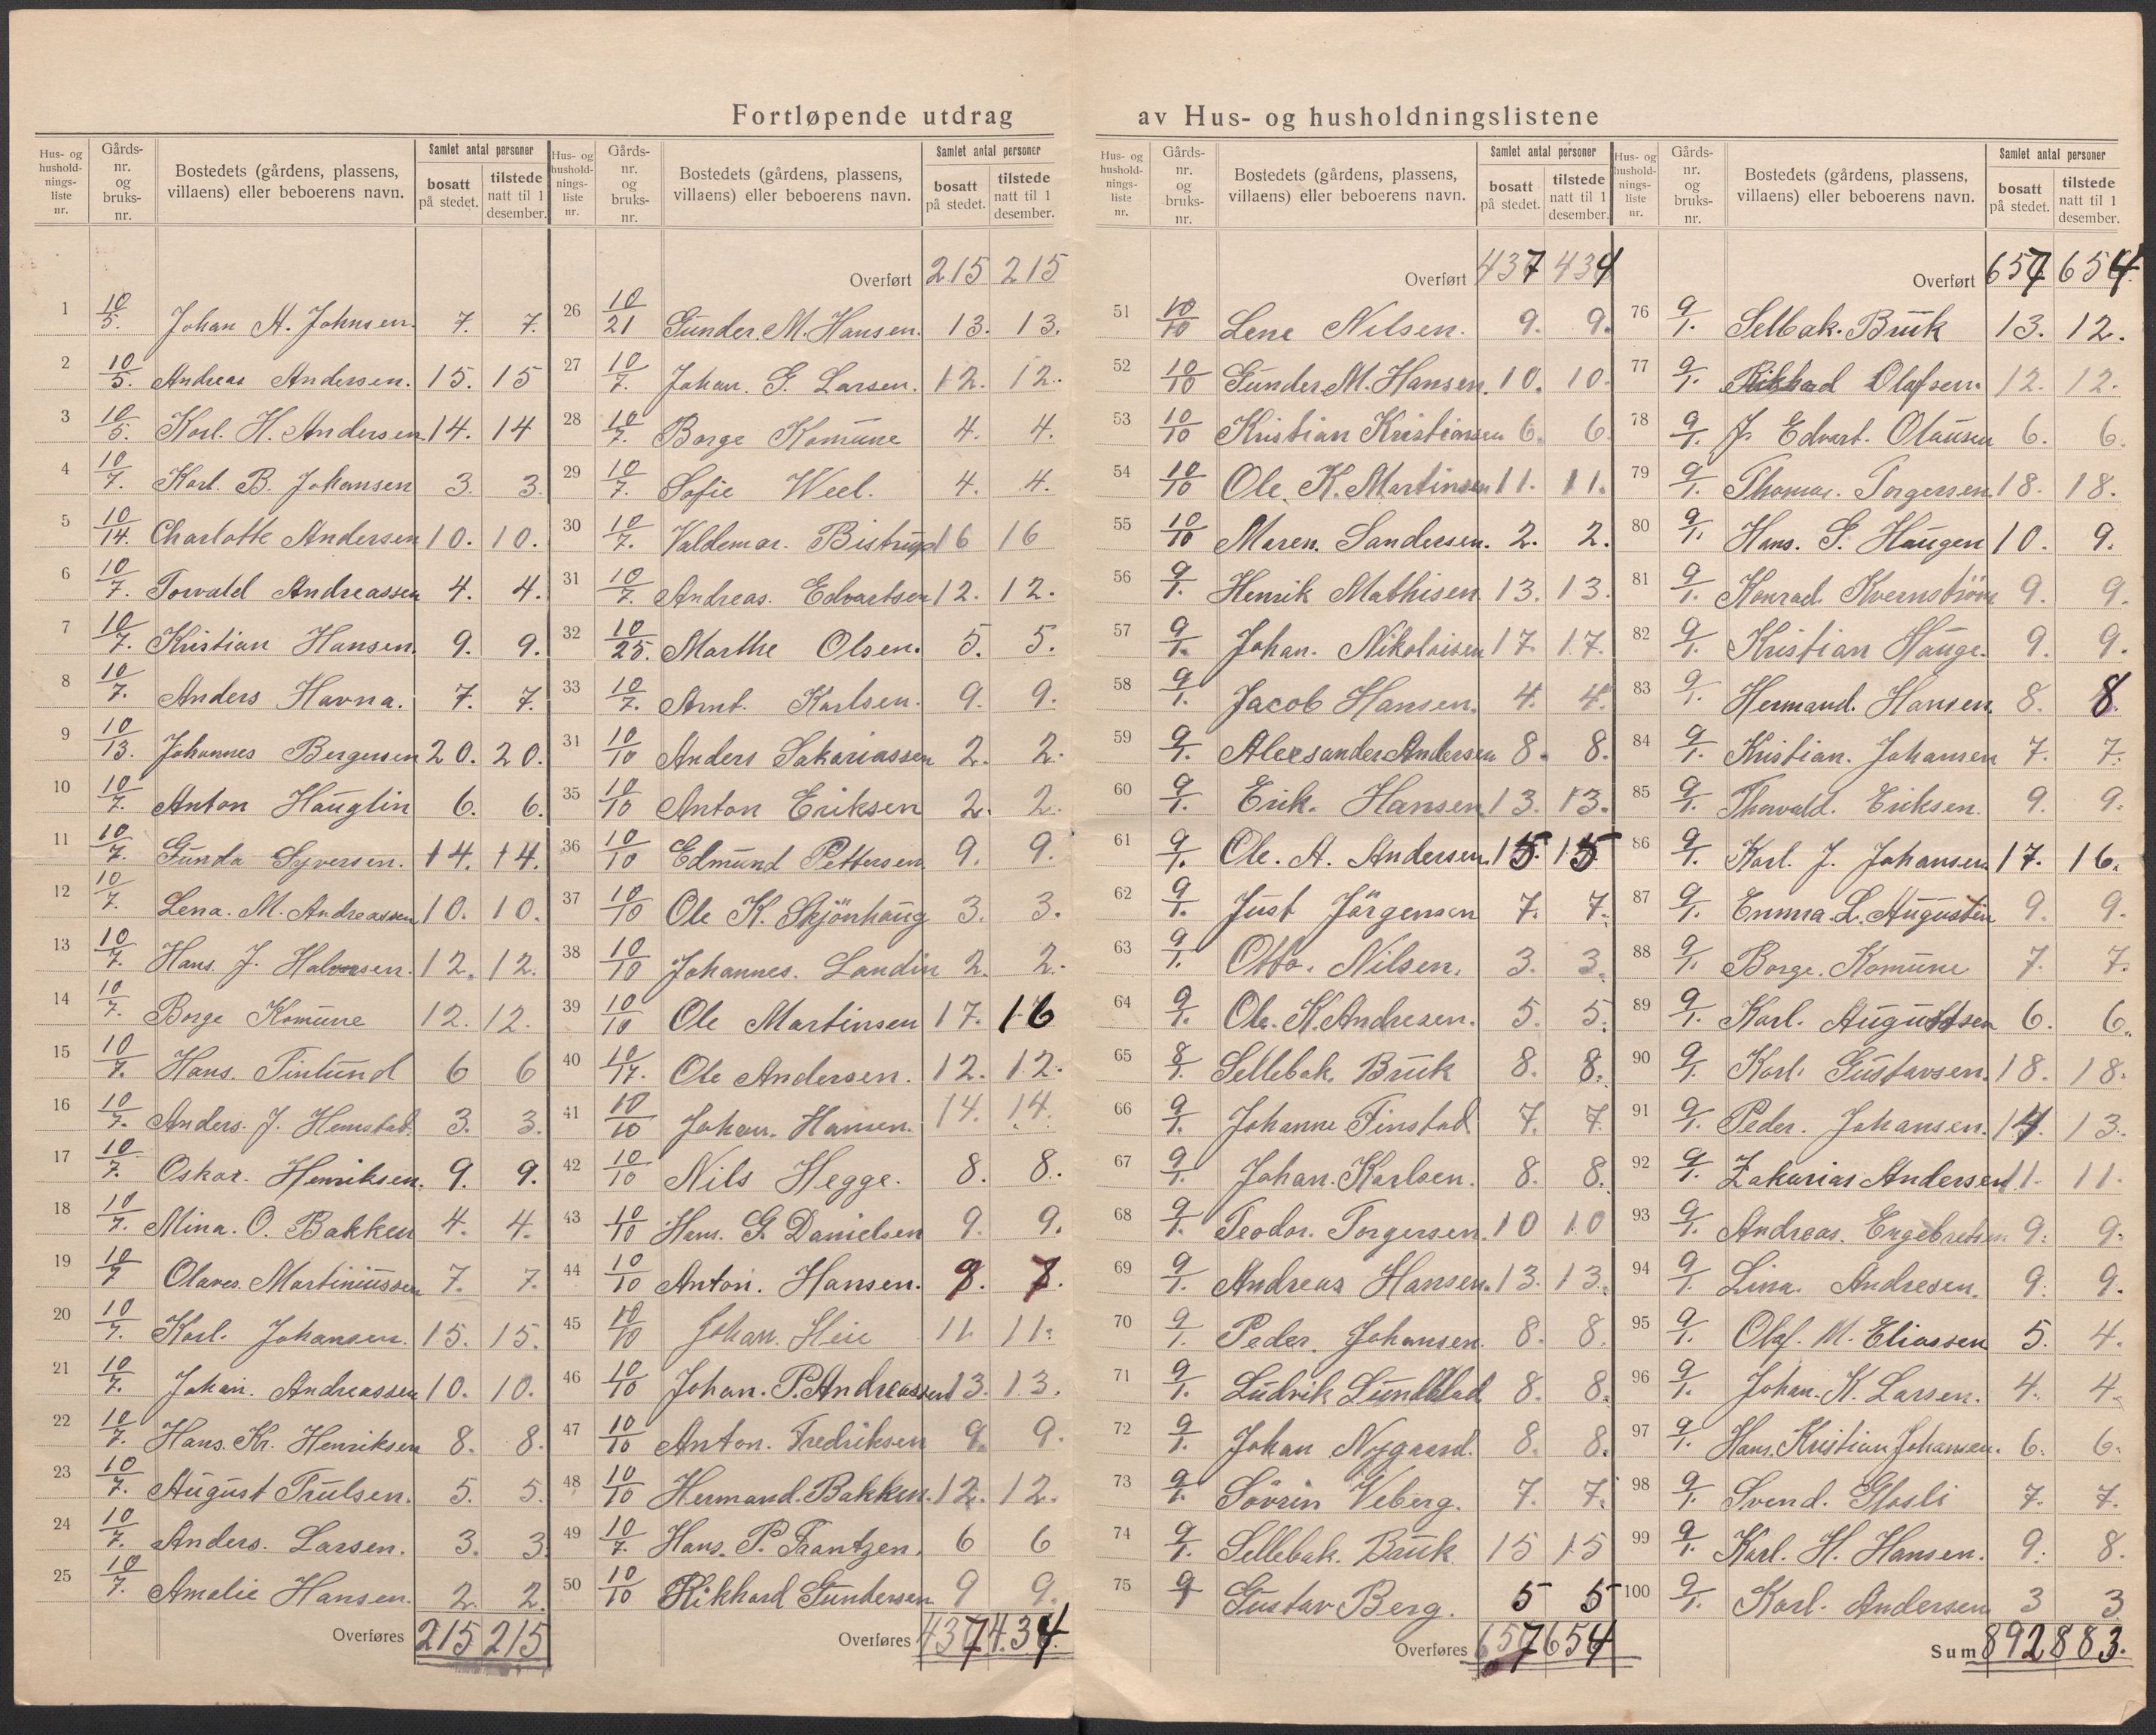 Fortløpende utdrag av Hus- og husholdningslistene
Hus- og hushold-nings-liste nr. Gårds-nr. og bruks-nr. Bostedets (gårdens, plassens, villaens) eller beboerens navn. Samlet antal personer bosatt på stedet. tilstede natt til 1 desember.
1 10/5. Johan A. Johnsen. 7. 7.
2 10/5. Andreas Andersen. 15. 15
3 10/5. Karl. H. Andersen 14. 14
4 10/7. Karl. B. Johansen 3. 3.
5 10/14. Charlotte Andersen 10. 10.
6 10/7. Torvald Andreassen 4. 4.
7 10/7. Kristian Hansen. 9. 9.
8 10/7. Anders Havna. 7. 7.
9 10/13. Johannes Bergersen 20. 20.
10 10/7. Anton Hauglin 6. 6.
11 10/7. Gunda Syversen. 14. 14.
12 10/7. Lena. M. Andreassen 10. 10.
13 10/7. Hans. J. Halvorsen. 12. 12.
14 10/7. Borge Komune 12. 12.
15 10/7. Hans. Tinlund 6 6
16 10/7. Anders. J. Hemstad. 3. 3.
17 10/7. Oskar. Henriksen. 9. 9.
18 10/7. Mina. O. Bakken 4. 4.
19 10/7 Olaves. Martiniussen 7. 7.
20 10/7. Karl. Johansen. 15. 15.
21 10/7. Johan. Andreassen 10. 10.
22 10/7. Hans. Kr. Henriksen 8. 8.
23 10/7. August Trulsen. 5. 5.
24 10/7. Anders. Larsen. 3. 3
25 10/7. Amalie Hansen. 2. 2.
Overføres 215 215
Hus- og hushold-nings-liste nr. Gårds-nr. og bruks-nr. Bostedets (gårdens, plassens, villaens) eller beboerens navn. Samlet antal personer bosatt på stedet. tilstede natt til 1 desember.
Overført 215 215
26 10/21 Gunder. M. Hansen. 13. 13.
27 10/7. Johan. G. Larsen. 12. 12.
28 10/7. Borge Komune 4. 4.
29 10/7. Sofie Weel. 4. 4.
30 10/7. Valdemar. Bistrup 16 16
31 10/7. Andreas. Edvartsen 12. 12.
32 10/25. Marthe Olsen. 5. 5.
33 10/7. Arnt. Karlsen. 9. 9.
31 10/10 Anders Sakariassen 2. 2.
35 10/10 Anton Eriksen 2. 2.
36 10/10 Edmund Pettersen 9. 9.
37 10/10 Ole K. Skjönhaug 3. 3.
38 10/10 Johannes. Landin 2. 2.
39 10/10 Ole Martinsen 17. 16
40 10/17. Ole Andersen. 12. 12.
41 10/10 Johan. Hansen. 14. 14.
42 10/10 Nils Hegge. 8. 8.
43 10/10 Hans. G. Danielsen 9. 9.
44 10/10 Anton. Hansen.
45 10/10 Johan. Heie 11. 11.
46 10/10 Johan. P. Andreassen 13. 13.
47 10/10 Anton. Fredriksen 9. 9.
48 10/10 Hermand. Bakken. 12. 12.
49 10/7. Hans. P. Frantzen. 6 6
50 10/10 Rikhard Gundersen 9 9.
Overføres 437 434
Hus- og hushold-nings-liste nr. Gårds-nr. og bruks-nr. Bostedets (gårdens, plassens, villaens) eller beboerens navn. Samlet antal personer bosatt på stedet. tilstede natt til 1 desember.
Overført 437 434
51 10/10 Lene Nilsen. 9. 9.
52 10/10 Gunder M. Hansen. 10. 10.
53 10/10 Kristian Kristiansen 6. 6.
54 10/10 Ole. K. Martinsen 11. 11.
55 10/10 Maren. Sandersen. 2. 2.
56 9/1. Henrik Mathisen 13. 13.
57 9/1. Johan. Nikolaisen 17. 17.
58 9/1. Jacob Hansen. 4. 4.
59 9/1. Alexsander Andersen 8. 8.
60 9/1. Erik. Hansen 13. 13.
61 9/1. Ole. A. Andersen. 15. 15
62 9/1. Just Jörgensen 7. 7.
63 9/1. Otto. Nilsen. 3. 3.
64 9/1. Ole. K. Andresen. 5. 5.
65 8/1. Sellebak. Bruk 8. 8.
66 9/1. Johanne Finstad 7. 7.
67 9/1. Johan. Karlsen. 8. 8.
68 9/1. Teodor. Torgersen. 10 10
69 9/1. Andreas Hansen. 13. 13.
70 9/1. Peder. Johansen. 8. 8.
71 9/1. Ludvik Lundblad 8. 8.
72 9/1. Johan Nygaard. 8. 8.
73 9/1. Sövrin Veberg. 7. 7.
74 9/1. Sellebak. Bruk. 15 15
75 9 Gustav Berg. 5 5
Overføres 657 654
Hus- og hushold-nings-liste nr. Gårds-nr. og bruks-nr. Bostedets (gårdens, plassens, villaens) eller beboerens navn. Samlet antal personer bosatt på stedet. tilstede natt til 1 desember.
Overført 657 654
76 9/1. Selbak. Bruk 13. 12.
77 9/1. Rikhard Olafsen. 12. 12.
78 9/1. J. Edvart. Olausen 6. 6.
79 9/1. Thomas. Torgersen. 18. 18.
80 9/1. Hans. S. Haugen 10. 9.
81 9/1. Konrad. Kvernström 9. 9.
82 9/1. Kristian Hauge. 9. 9.
83 9/1. Hermand. Hansen. 8. 8.
84 9/1. Kristian. Johansen 7. 7.
85 9/1. Thorvald. Eriksen. 9. 9.
86 9/1. Karl. J. Johansen 17. 16.
87 9/1. Emma. L. Augustin 9. 9.
88 9/1. Borge. Komune 7. 7.
89 9/1. Karl. Augustsen 6. 6.
90 9/1. Karl. Gustavsen. 18. 18.
91 9/1. Peder. Johansen. 14. 13.
92 9/1. Zakarias Andersen 11. 11.
93 9/1. Andreas. Engebretsen 9. 9.
94 9/1. Lina. Andresen. 9. 9.
95 9/1. Olaf. M. Eliassen 5. 4.
96 9/1. Johan. K. Larsen. 4. 4.
97 9/1. Hans. Kristian Johansen. 6. 6.
98 9/1. Svend. Glosli 7. 7.
99 9/1. Karl. H. Hansen. 9. 8.
100 9/1. Karl. Andersen 3 3
Sum 892 883.